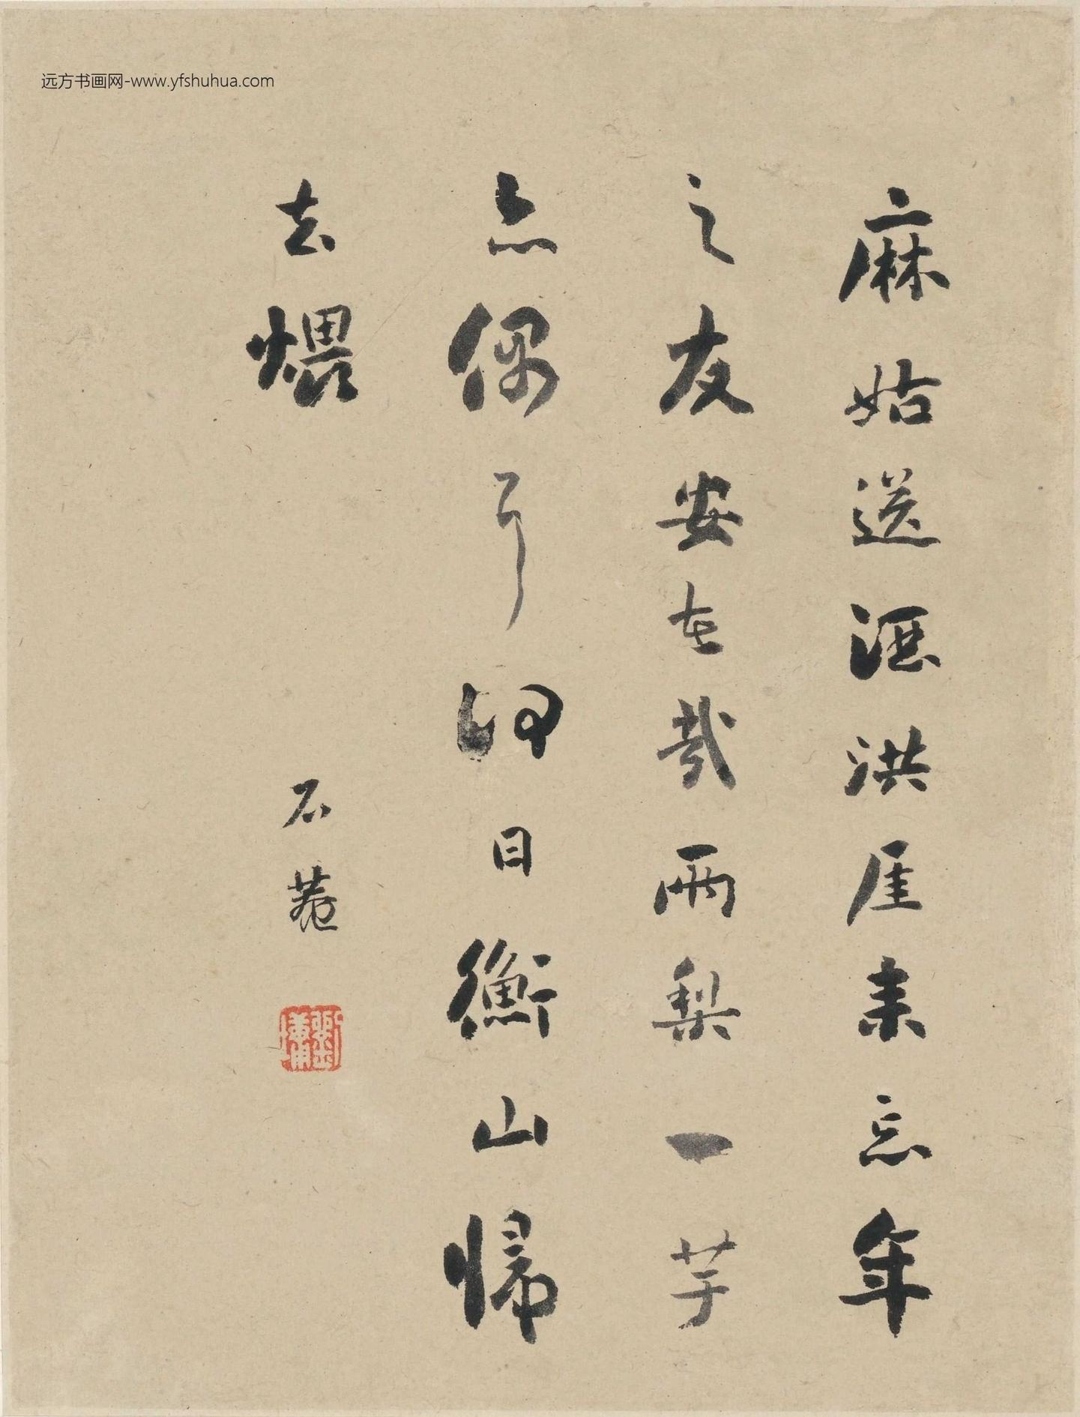 远方书画网-www.yfshuhua.com
麻姑送酒洪厓来忘年
之友安在哉兩梨一芋
亦偶耳何日衡山歸
去煨
石菴
劉墉